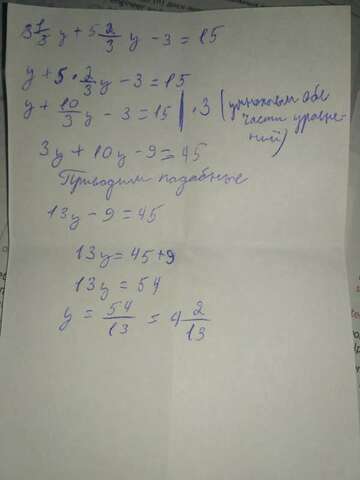 3 1/3 y + 5 2/3 y - 3 = 15
y + 5 · 2/3 y - 3 = 15
y + 10/3 y - 3 = 15 | · 3 (умножаем обе части уравнений)
3y + 10y - 9 = 45
Приводим подобные
13y - 9 = 45
13y = 45 + 9
13y = 54
y = 54/13 = 4 2/13